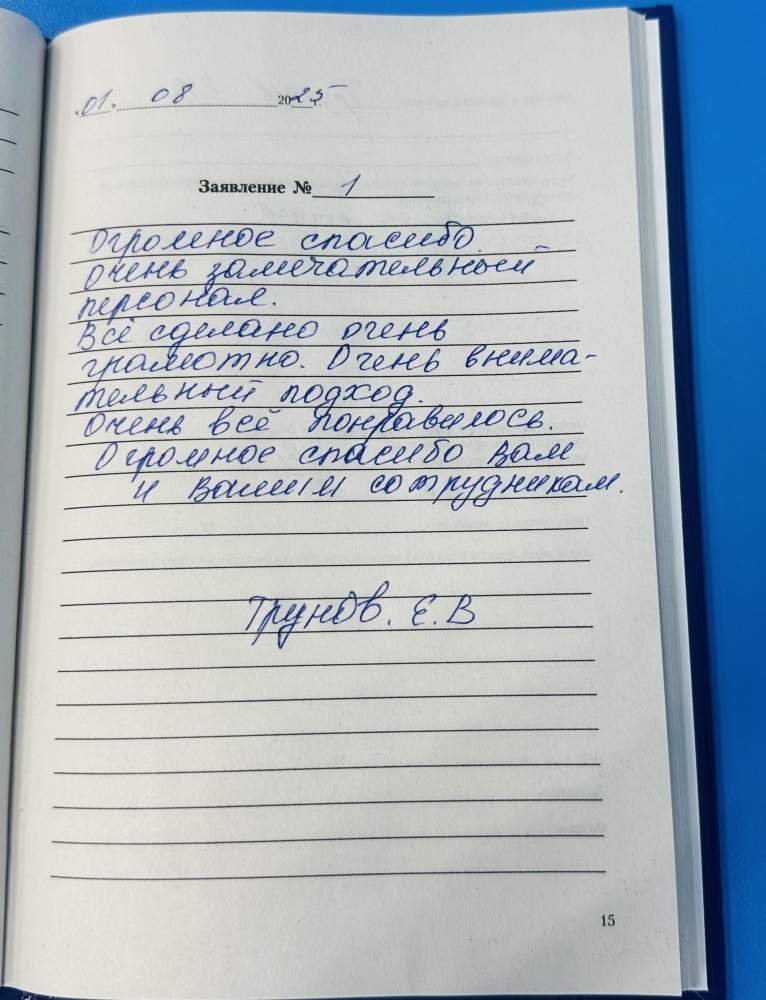 01. 08 2025 г.
Заявление № 1
Огромное спасибо.
Очень замечательный
персонал.
Всё сделано очень
грамотно. Очень внима-
тельный подход.
Очень всё понравилось.
Огромное спасибо Вам
и Вашим сотрудникам.
Трунов. Е. В
15